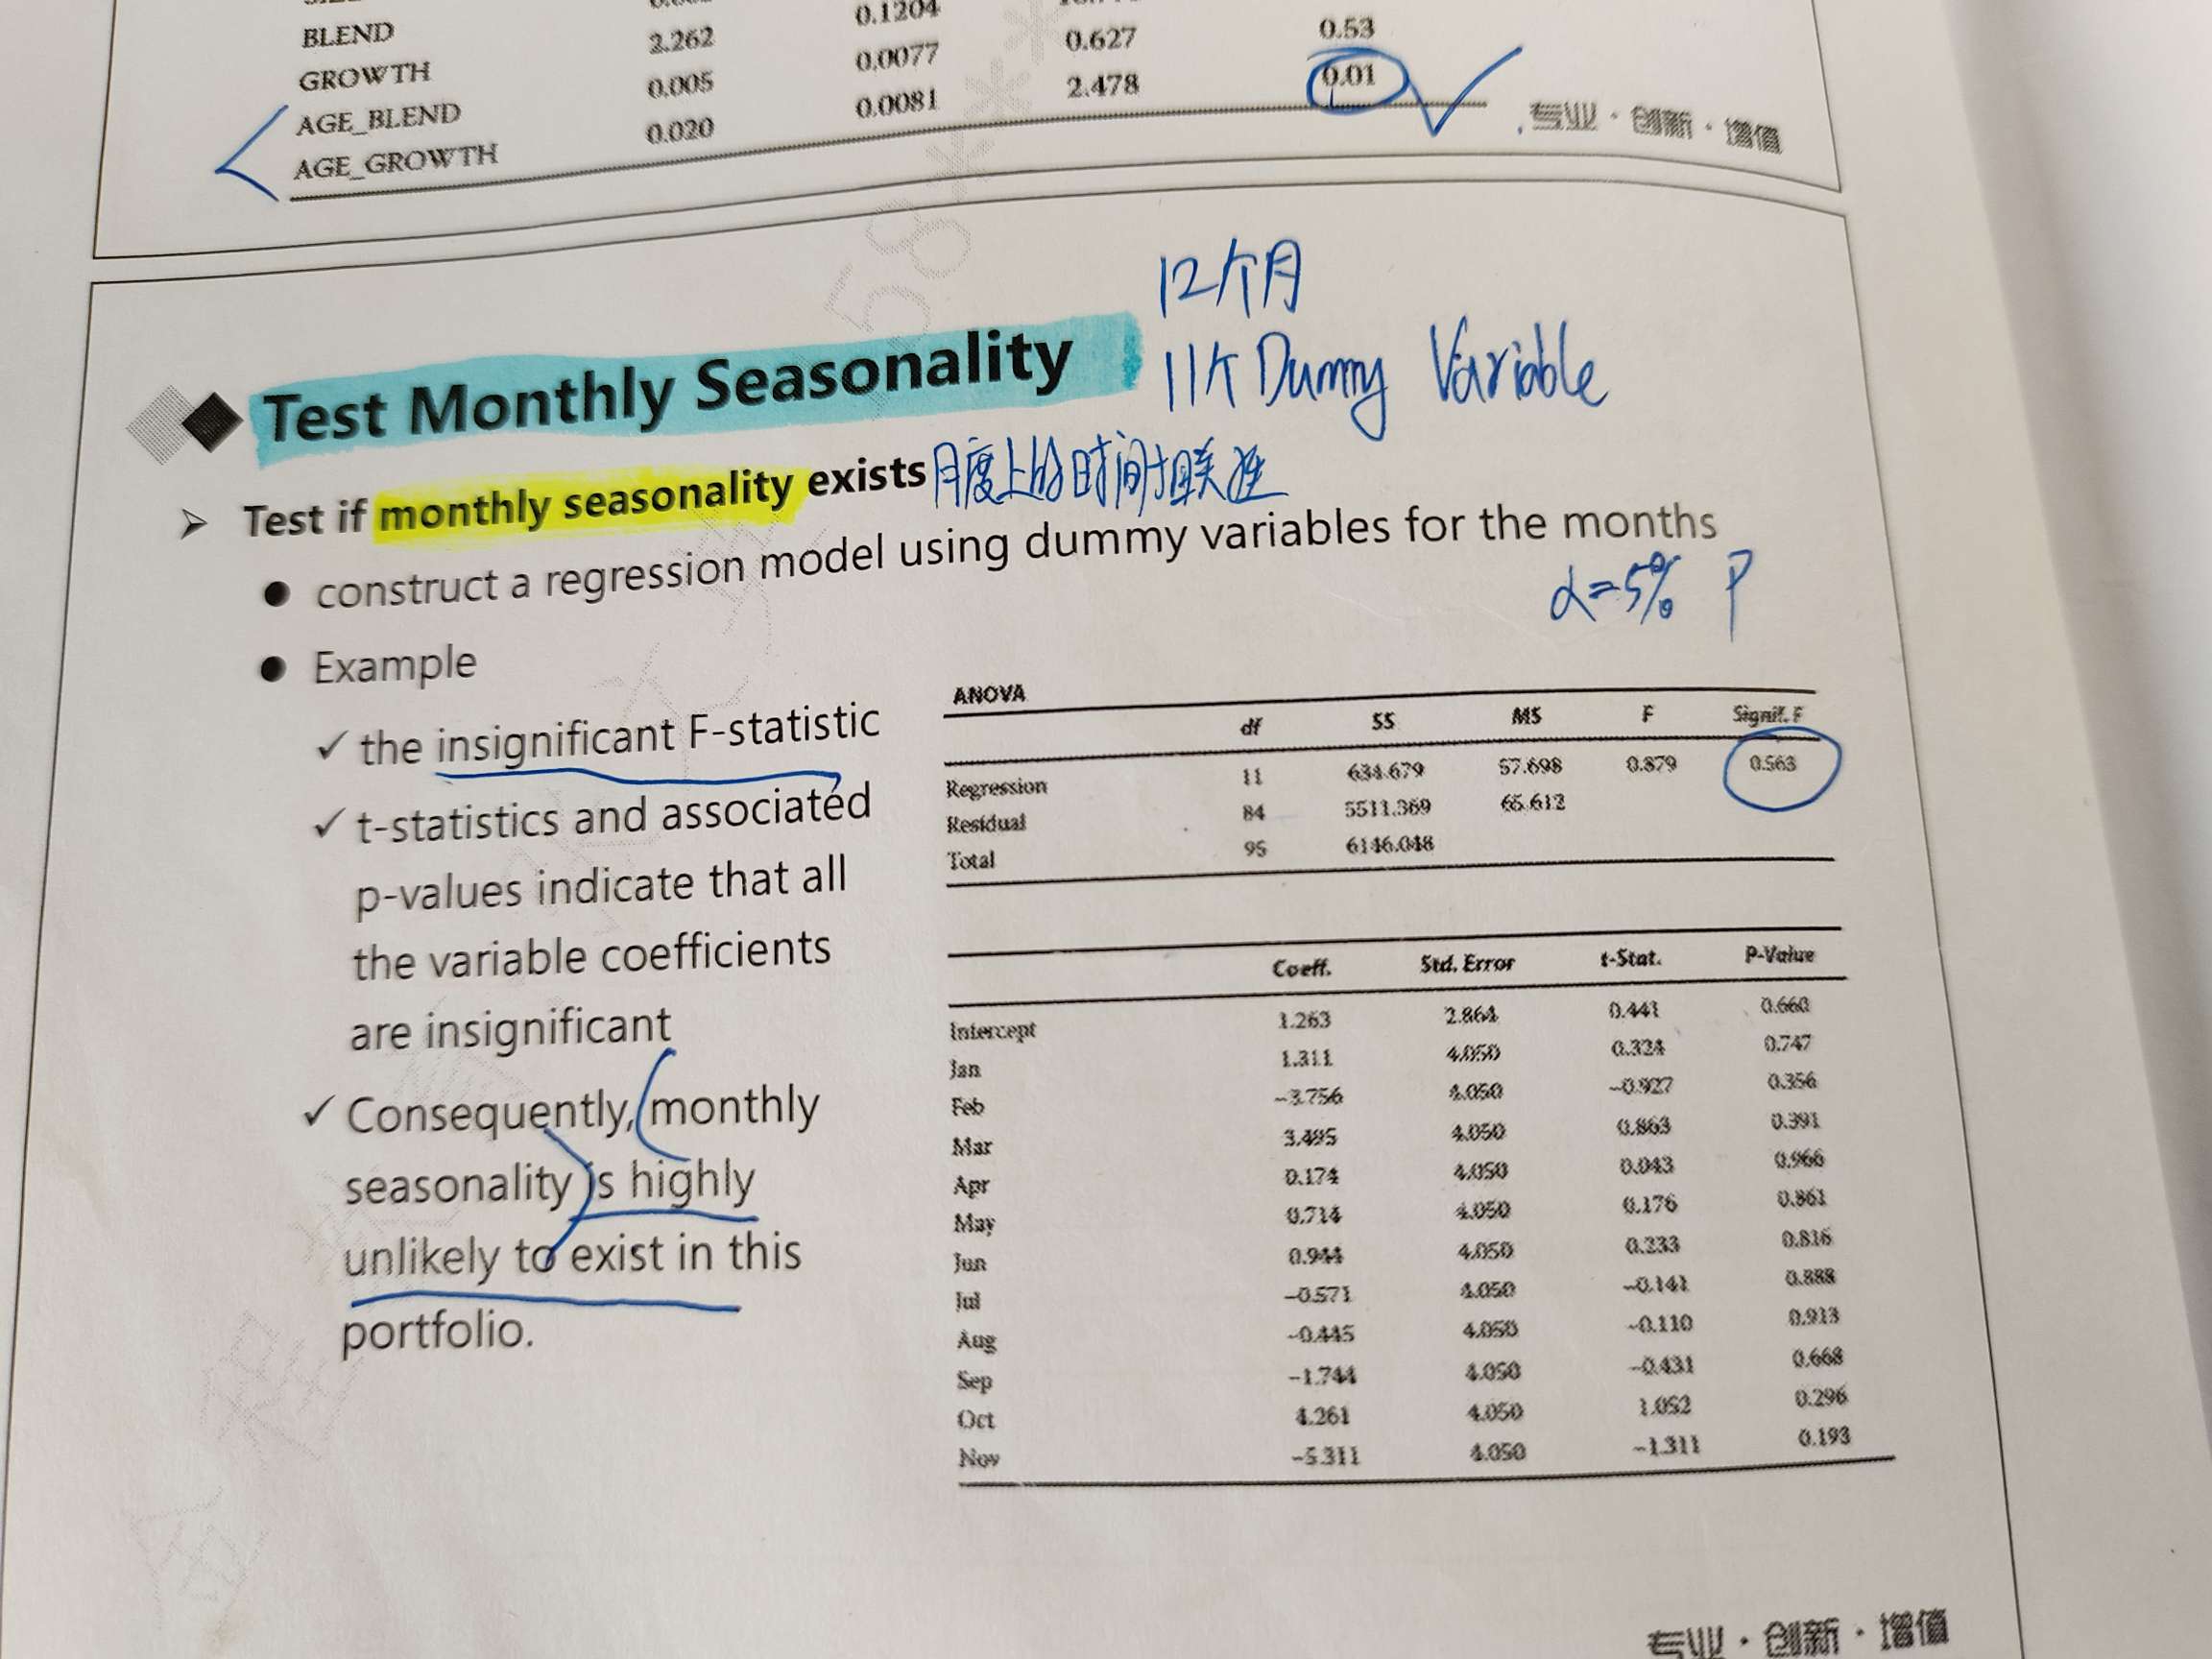 BLEND 2.262 0.1204
GROWTH 0.005 0.0077 0.627 0.53
AGE_BLEND 0.020 0.0081 2.478 0.01
AGE_GROWTH
专业·创新·增值
12个月
Test Monthly Seasonality 11个 Dummy Variable
Test if monthly seasonality exists 月度上的时间
construct a regression model using dummy variables for the months
α=5% P
Example
the insignificant F-statistic
t-statistics and associated
p-values indicate that all
the variable coefficients
are insignificant
Consequently, monthly
seasonality is highly
unlikely to exist in this
portfolio.
ANOVA
df SS MS F Signif. F
Regression 11 634.679 57.698 0.879 0.563
Residual 84 5511.369 65.612
Total 95 6146.048
Coeff. Std. Error t-Stat. P-Value
Intercept 1.263 2.864 0.441 0.660
Jan 1.311 4.050 0.324 0.747
Feb −3.756 4.050 −0.927 0.356
Mar 3.495 4.050 0.863 0.391
Apr 0.174 4.050 0.043 0.966
May 0.714 4.050 0.176 0.861
Jun 0.944 4.050 0.233 0.816
Jul −0.571 4.050 −0.141 0.888
Aug −0.445 4.050 −0.110 0.913
Sep −1.744 4.050 −0.431 0.668
Oct 4.261 4.050 1.052 0.296
Nov −5.311 4.050 −1.311 0.193
专业·创新·增值